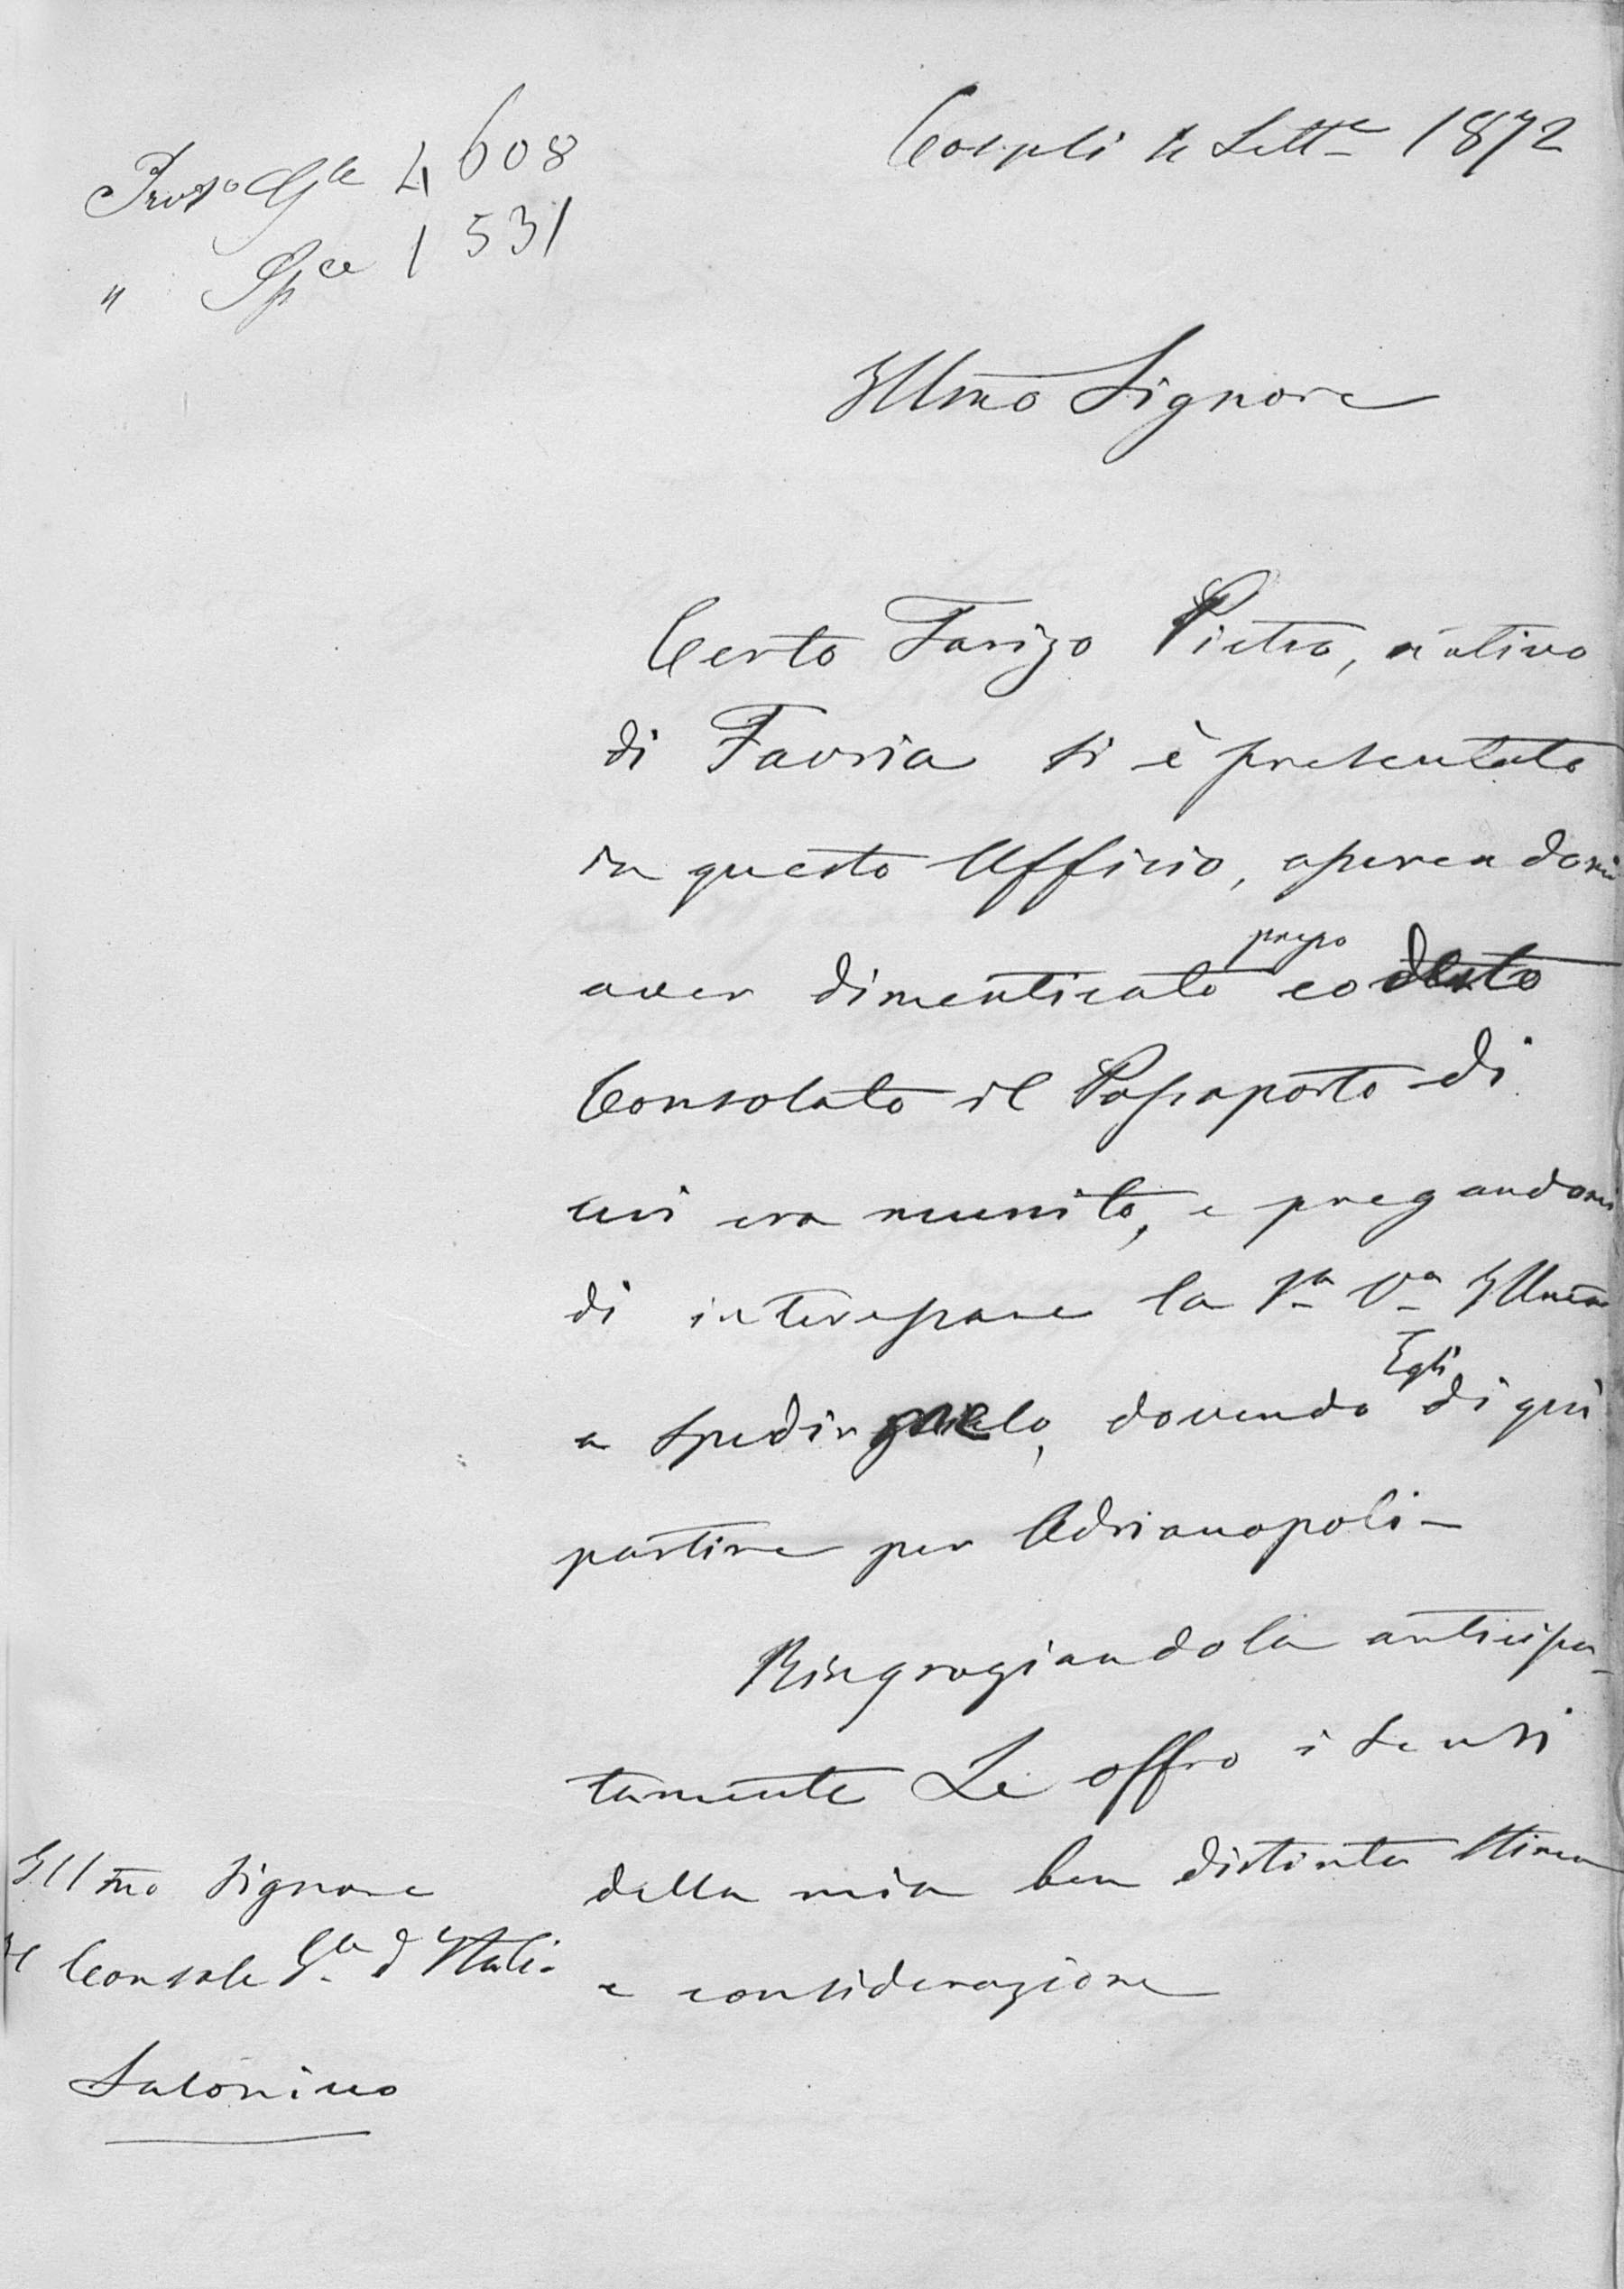 Prot.o Gle 4608
" Sple 1531
Cospoli Sett.e 1872
Illmo Signore
Certo Farizo Pietro, nativo
di Favria si è presentato
in questo Ufficio, asserendomi
aver dimenticato presso codesto
Consolato il Passaporto di
cui era munito, e pregandomi
di interessare la S.a V.a Illma
a spedirglielo, dovendo Egli di qui
partire per Adrianopoli –
Ringraziandola anticipa-
tamente Le offro i sensi
della mia ben distinta stima
e considerazione
Illmo Signore
Il Console G.le d'Italia
Salonicco